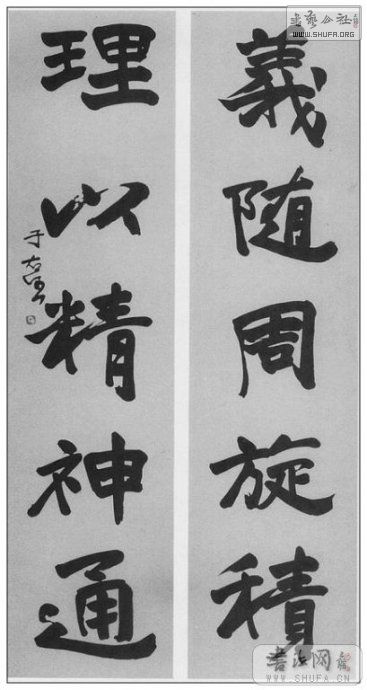 義随周旋積
理以精神通
于右任
書藝公社
WWW.SHUFA.ORG
書法网
WWW.SHUFA.CN